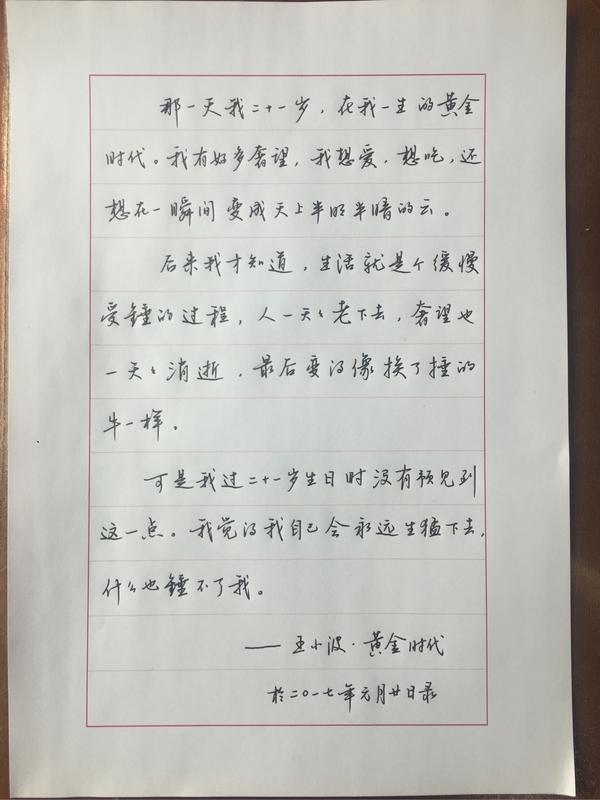 那一天我二十一岁，在我一生的黄金
时代。我有好多奢望，我想爱，想吃，还
想在一瞬间变成天上半明半暗的云。
后来我才知道，生活就是个缓慢
受锤的过程，人一天々老下去，奢望也
一天々消逝，最后变得像挨了捶的
牛一样。
可是我过二十一岁生日时没有预见到
这一点。我觉得我自己会永远生猛下去，
什么也锤不了我。
——王小波·黄金时代
於二〇一七年元月廿日录